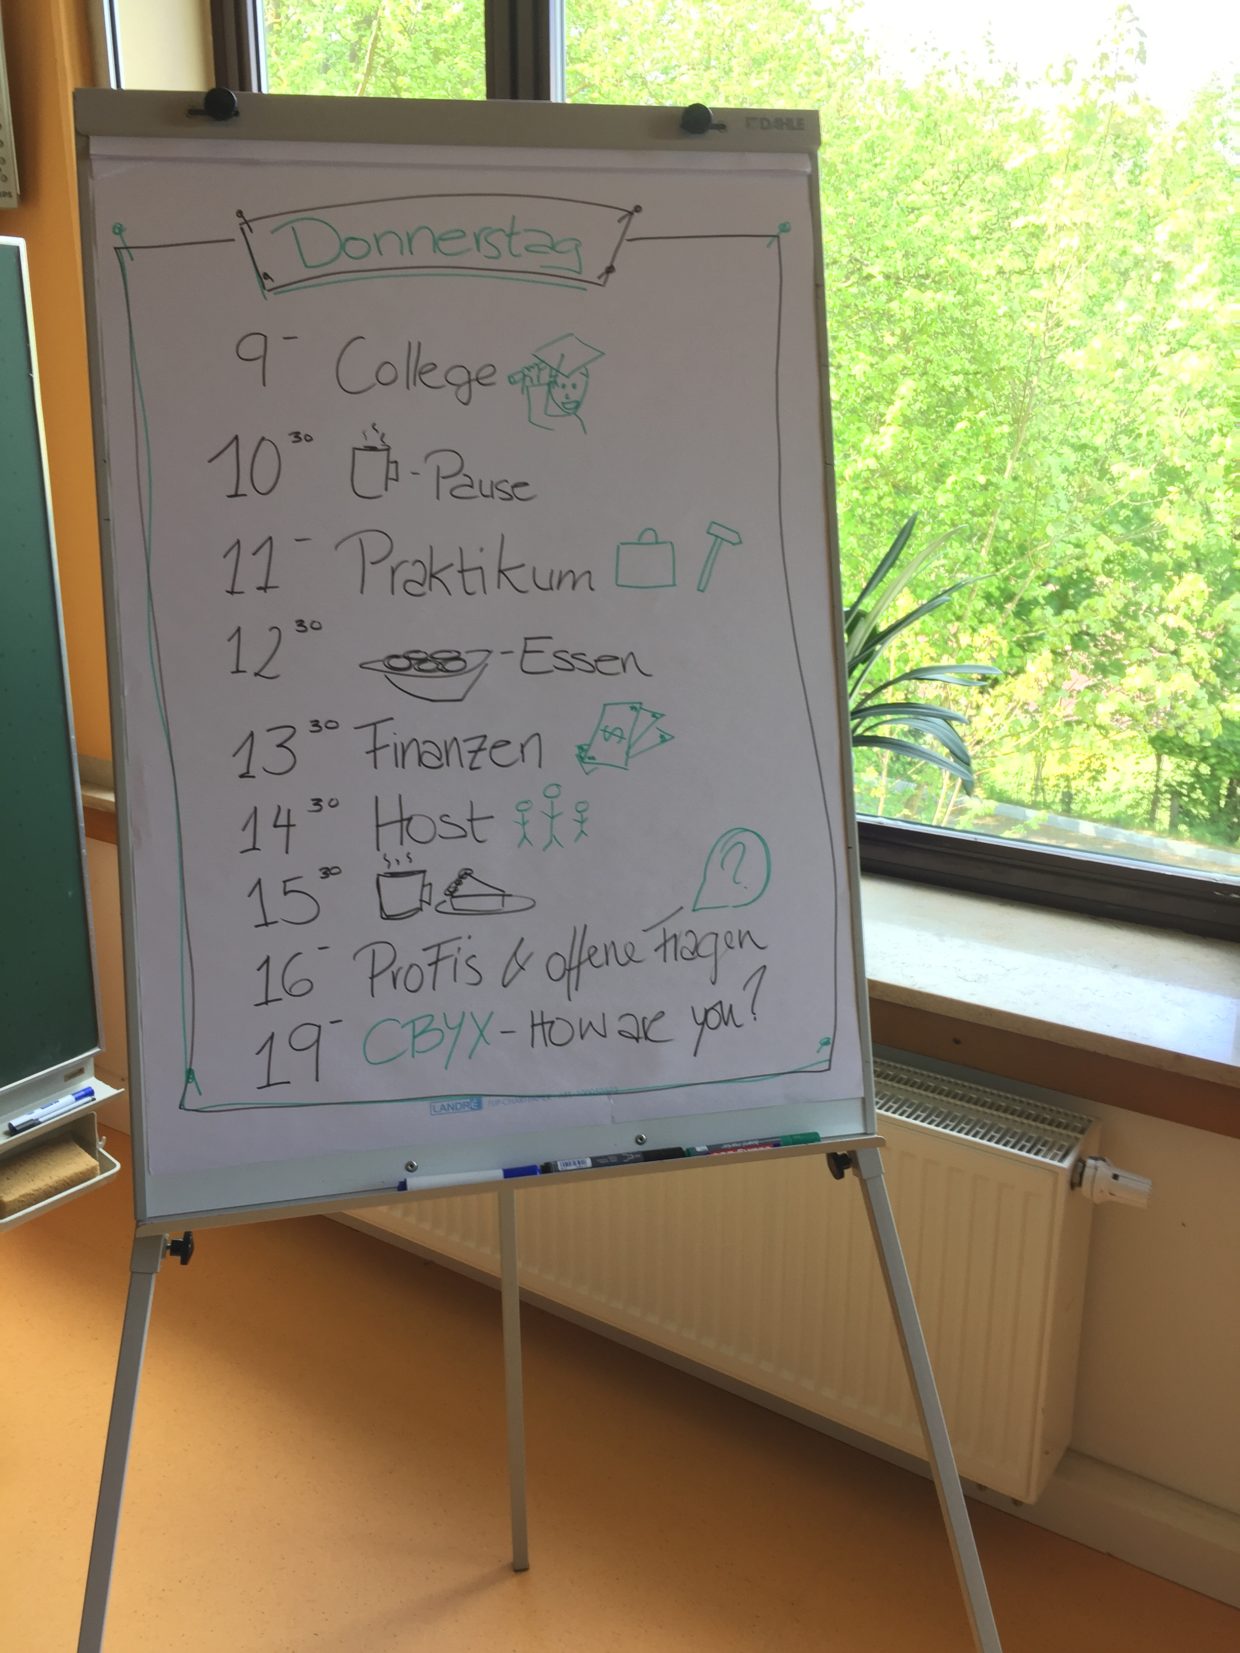 DAHLE
Donnerstag
9- College
10 30 -Pause
11- Praktikum
12 30 -Essen
13 30 Finanzen $
14 30 Host
15 30
?
16- Profis & offene Fragen
19- CBYX - How are you?
LANDRÉ